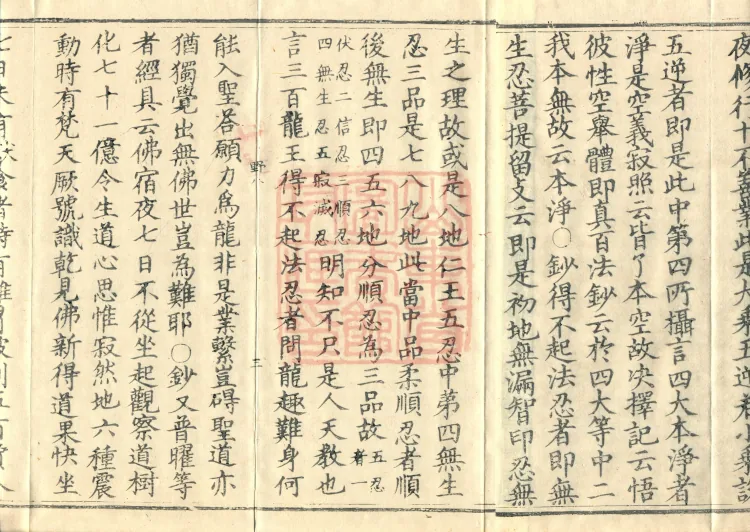 夜修行十不善業此是大乗五逆若小乗說
五逆者即是此中第四所攝言四大本淨者
淨是空義寂照云皆了本空故決擇記云悟
彼性空舉體即真百法鈔云於四大等中二
我本無故云本淨〇鈔得不起法忍者即無
生忍菩提留支云即是初地無漏智印忍無
生之理故或是八地仁王五忍中第四無生
忍三品是七八九地此當中品柔順忍者順
後無生即四五六地分順忍為三品故五忍者一
伏忍二信忍三順忍四無生忍五寂滅忍明知不只是人天教也
言三百龍王得不起法忍者問龍趣難身何
野八
三
能入聖荅願力為龍非是業繫豈碍聖道亦
猶獨覺出無佛世豈為難耶〇鈔又普曜等
者經具云佛宿夜七日不從坐起觀察道樹
化七十一億令生道心思惟寂然地六種震
動時有梵天厥號識乾見佛新得道果快坐
七日未有